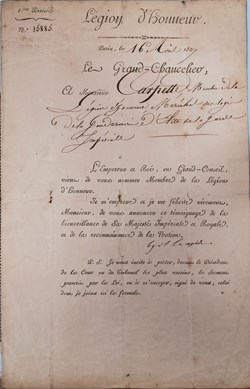 Légion d'Honneur.
Paris, le 16 1807
Le Grand-Chancelier,
A Monsieur
de la Gendarmerie
Impériale
L'Empereur et Roi, en Grand-Conseil,
vient de vous nommer Membre de la Légion
d'Honneur.
Je m'empresse et je me félicite vivement,
Monsieur, de vous annoncer ce témoignage de la
bienveillance de Sa Majesté Impériale et Royale,
et de la reconnaissance de la Nation.
P. S. Je vous invite à prêter, devant le Président
de la Cour ou du Tribunal le plus voisin, le serment
prescrit par la Loi, et à m'envoyer, signé de vous, celui
dont je joins ici la formule.